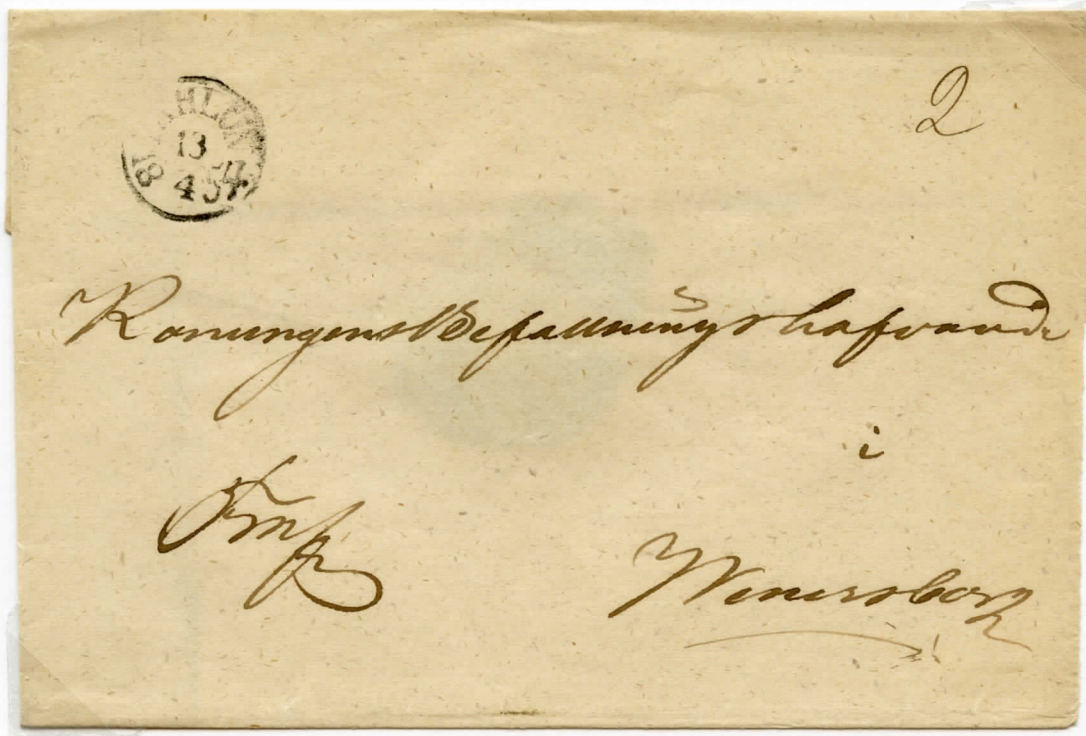 2
13
4
18 57
Konungens Befallningshafvande
i
Wenersborg